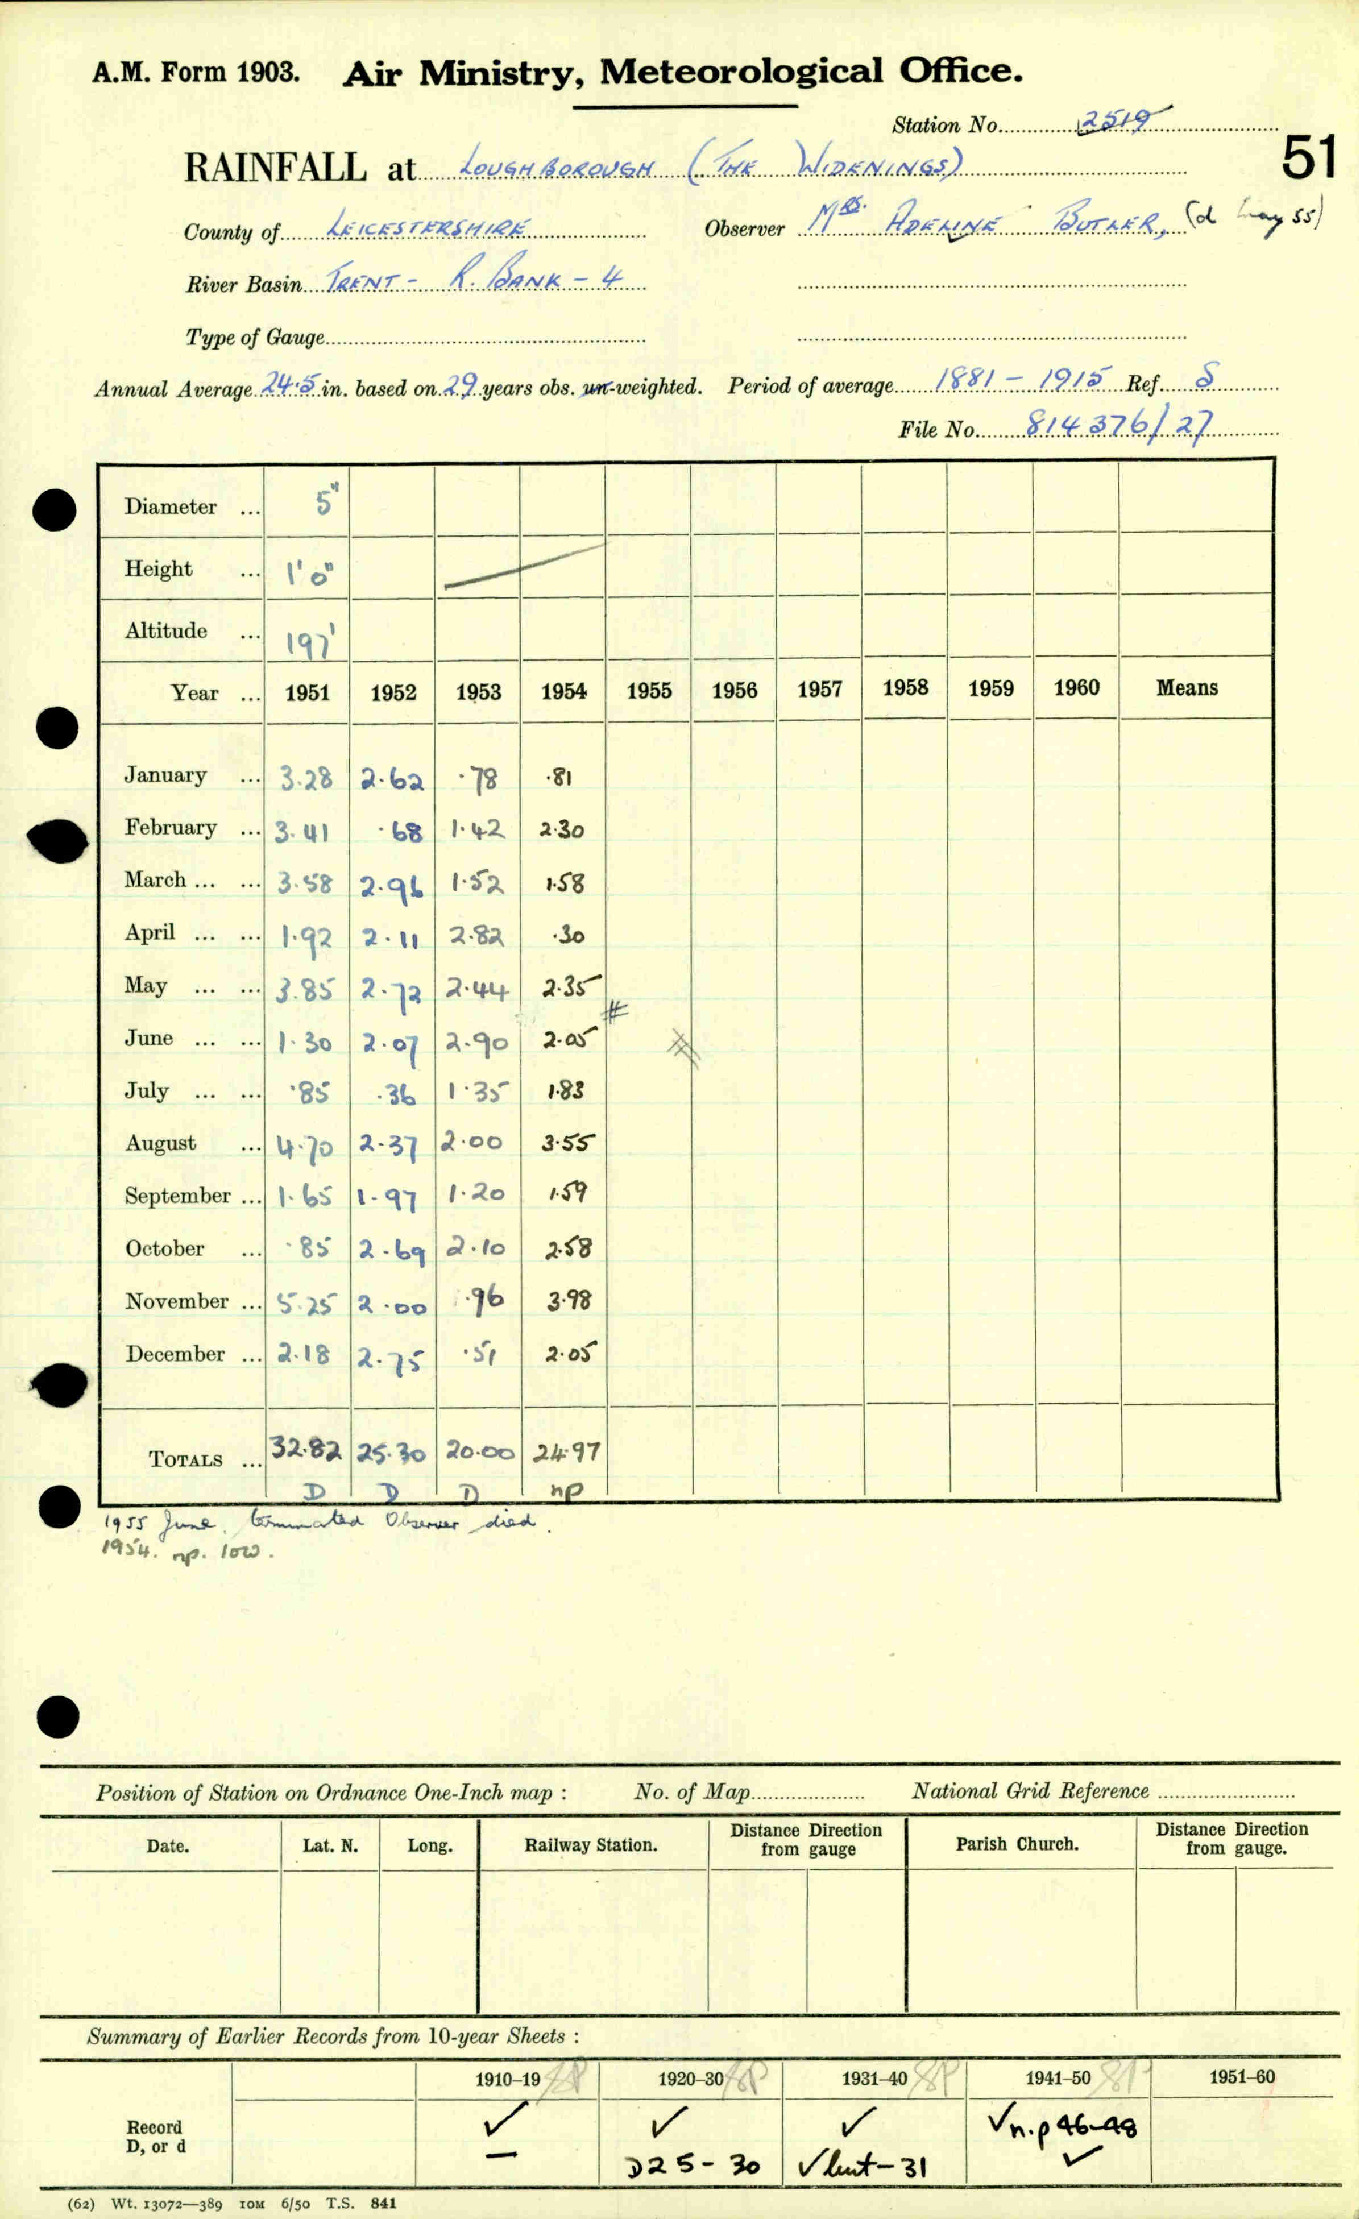 A.M. Form 1903. Air Ministry, Meteorological Office.
Station No. 2519
51
RAINFALL at LOUGHBOROUGH (THE WIDENINGS)
County of LEICESTERSHIRE Observer Mrs. ADELINE BUTLER, (d May 55)
River Basin TRENT - R. BANK - 4
Type of Gauge
Annual Average 24.5 in. based on 29 years obs. un-weighted. Period of average 1881 - 1915 Ref. S
File No. 814376/27
Diameter ... 5"
Height ... 1' 0"
Altitude ... 197'
Year ... 1951 1952 1953 1954 1955 1956 1957 1958 1959 1960 Means
January ... 3.28 2.62 .78 .81
February ... 3.41 .68 1.42 2.30
March ... ... 3.58 2.96 1.52 1.58
April ... ... 1.92 2.11 2.82 .30
May ... ... 3.85 2.72 2.44 2.35
#
June ... ... 1.30 2.07 2.90 2.05
July ... ... .85 .36 1.35 1.83
August ... 4.70 2.37 2.00 3.55
September ... 1.65 1.97 1.20 1.59
October ... .85 2.69 2.10 2.58
November ... 5.25 2.00 .96 3.98
December ... 2.18 2.75 .51 2.05
TOTALS ... 32.82 25.30 20.00 24.97
D D D np
1955 June. terminated Observer died.
1954. np. low.
Position of Station on Ordnance One-Inch map : No. of Map National Grid Reference
Date. Lat. N. Long. Railway Station. Distance from Direction gauge Parish Church. Distance from Direction gauge.
Summary of Earlier Records from 10-year Sheets :
1910–19 1920–30 1931–40 1941–50 1951–60
Record ✓ ✓ ✓ ✓ n.p 46-48
D, or d — D25-30 ✓ but-31 ✓
(62) Wt. 13072—389 10M 6/50 T.S. 841